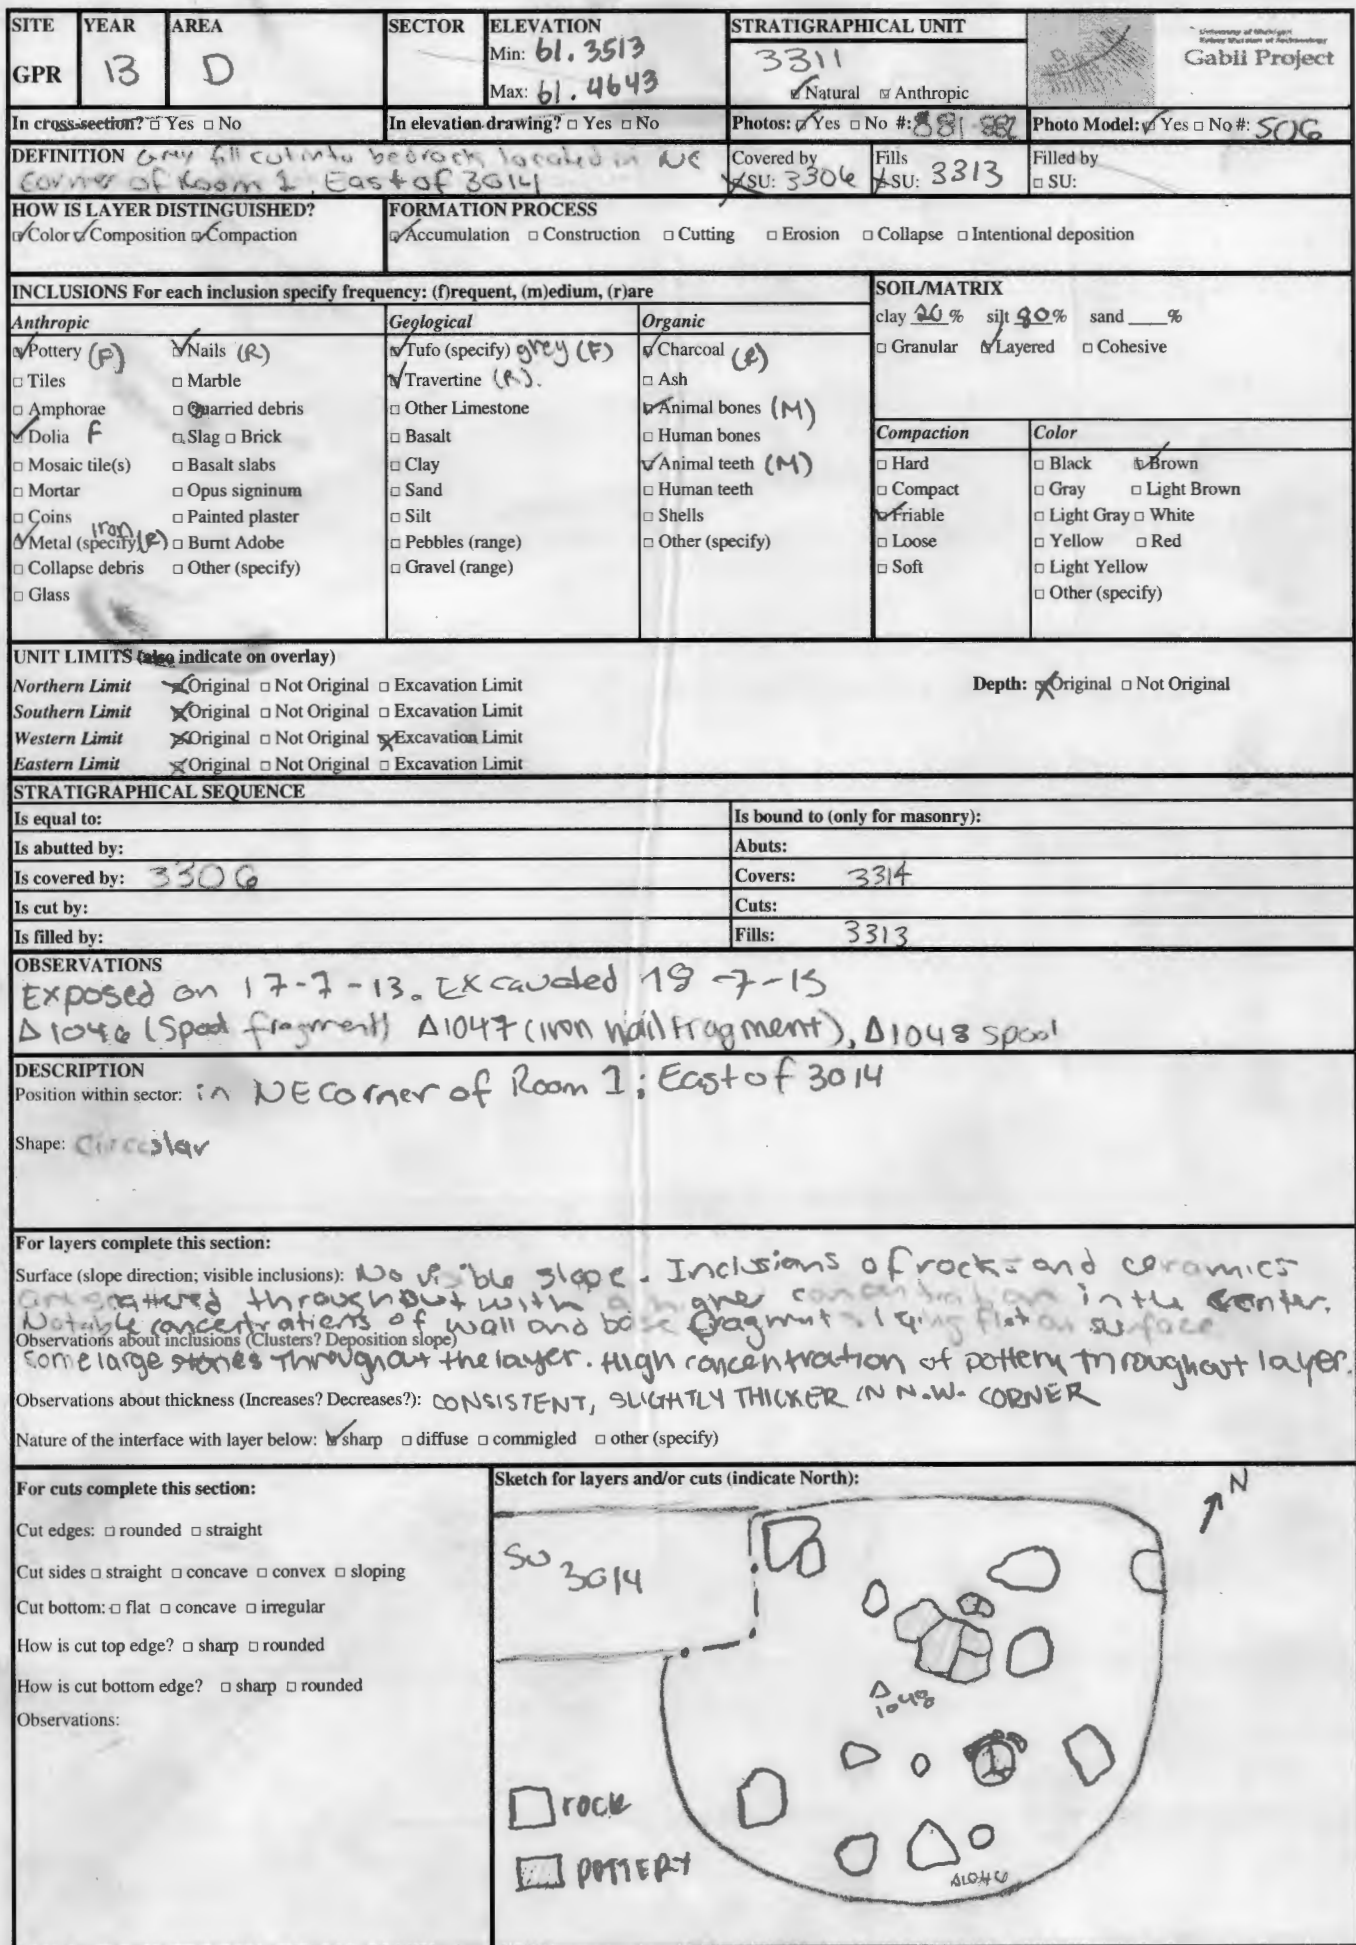 SITE YEAR AREA SECTOR ELEVATION STRATIGRAPHICAL UNIT
GPR 13 D Min: 61.3513 Max: 61.4643 3311
☑ Natural □ Anthropic
Gabii Project
In cross-section? □ Yes □ No In elevation drawing? □ Yes □ No Photos: ☑ Yes □ No #: 881-882 Photo Model: ☑ Yes □ No #: 506
DEFINITION Grey fill cut into bedrock, located in NE
Corner of Room 1, East of 3014
Covered by ☑ SU: 3306 Fills ☑ SU: 3313 Filled by □ SU:
HOW IS LAYER DISTINGUISHED? FORMATION PROCESS
☑ Color ☑ Composition ☑ Compaction ☑ Accumulation □ Construction □ Cutting □ Erosion □ Collapse □ Intentional deposition
INCLUSIONS For each inclusion specify frequency: (f)requent, (m)edium, (r)are
Anthropic
☑ Pottery (F) ☑ Nails (R)
□ Tiles □ Marble
□ Amphorae □ Quarried debris
☑ Dolia F □ Slag □ Brick
□ Mosaic tile(s) □ Basalt slabs
□ Mortar □ Opus signinum
□ Coins □ Painted plaster
☑ Metal (specify) iron (R) □ Burnt Adobe
□ Collapse debris □ Other (specify)
□ Glass
Geological
☑ Tufo (specify) grey (F)
☑ Travertine (R).
□ Other Limestone
□ Basalt
□ Clay
□ Sand
□ Silt
□ Pebbles (range)
□ Gravel (range)
Organic
☑ Charcoal (R)
□ Ash
☑ Animal bones (M)
□ Human bones
☑ Animal teeth (M)
□ Human teeth
□ Shells
□ Other (specify)
SOIL/MATRIX
clay 20 % silt 80 % sand ___ %
□ Granular ☑ Layered □ Cohesive
Compaction
□ Hard
□ Compact
☑ Friable
□ Loose
□ Soft
Color
□ Black ☑ Brown
□ Gray □ Light Brown
□ Light Gray □ White
□ Yellow □ Red
□ Light Yellow
□ Other (specify)
UNIT LIMITS (also indicate on overlay)
Northern Limit ☒ Original □ Not Original □ Excavation Limit Depth: ☒ Original □ Not Original
Southern Limit ☒ Original □ Not Original □ Excavation Limit
Western Limit ☒ Original □ Not Original ☒ Excavation Limit
Eastern Limit ☒ Original □ Not Original □ Excavation Limit
STRATIGRAPHICAL SEQUENCE
Is equal to: Is bound to (only for masonry):
Is abutted by: Abuts:
Is covered by: 3306 Covers: 3314
Is cut by: Cuts:
Is filled by: Fills: 3313
OBSERVATIONS
Exposed on 17-7-13. Excavated 18-7-13
Δ1046 (Spool fragment) Δ1047 (iron nail fragment), Δ1048 spool
DESCRIPTION
Position within sector: in NE Corner of Room 1; East of 3014
Shape: Circular
For layers complete this section:
Surface (slope direction; visible inclusions): No visible slope. Inclusions of rocks and ceramics
are scattered throughout with a higher concentration in the center.
Notable concentrations of wall and base fragments lying flat on surface
Observations about inclusions (Clusters? Deposition slope)
some large stones throughout the layer. High concentration of pottery throughout layer.
Observations about thickness (Increases? Decreases?): CONSISTENT, SLIGHTLY THICKER IN N.W. CORNER
Nature of the interface with layer below: ☑ sharp □ diffuse □ commigled □ other (specify)
For cuts complete this section:
Cut edges: □ rounded □ straight
Cut sides □ straight □ concave □ convex □ sloping
Cut bottom: □ flat □ concave □ irregular
How is cut top edge? □ sharp □ rounded
How is cut bottom edge? □ sharp □ rounded
Observations:
Sketch for layers and/or cuts (indicate North):
N
SU 3014
Δ
1048
rock
POTTERY
Δ1046